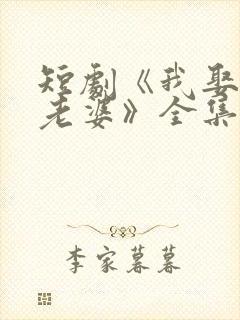 短劇《我娶
老婆》全集
李家暮暮